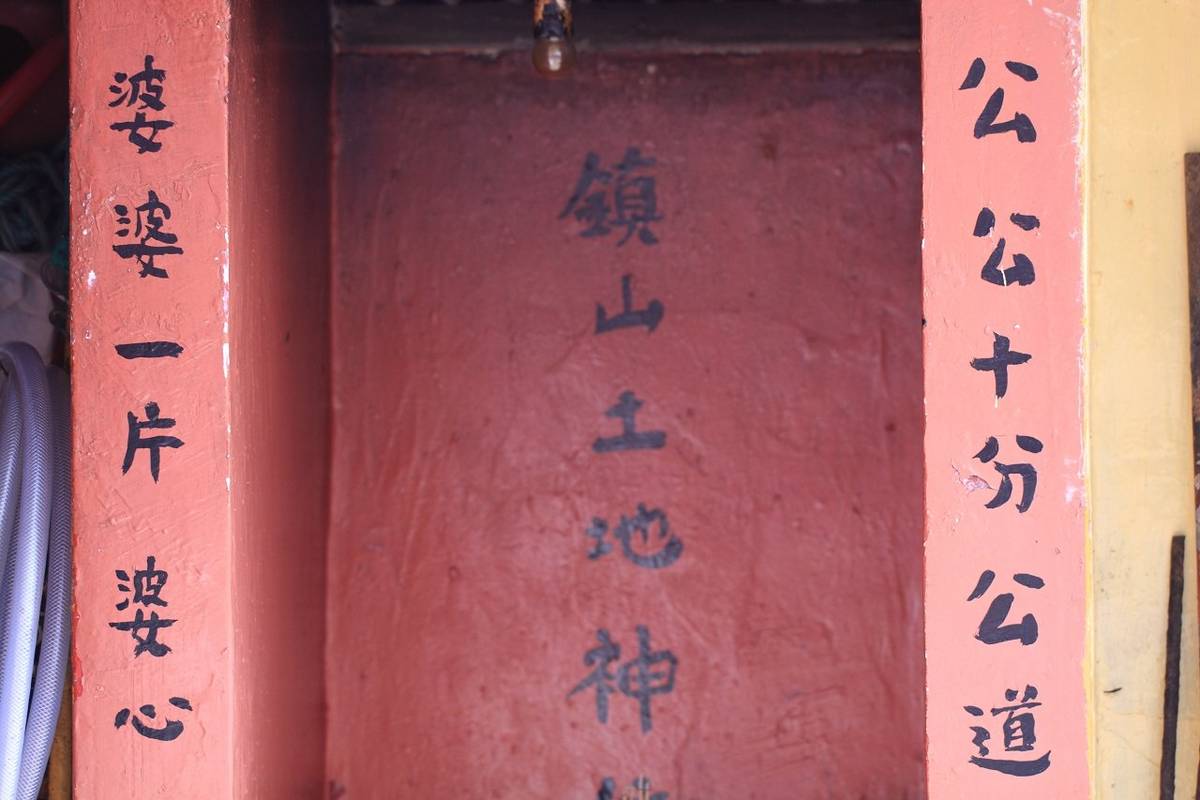 公公十分公道
鎮山土地神
婆婆一片婆心